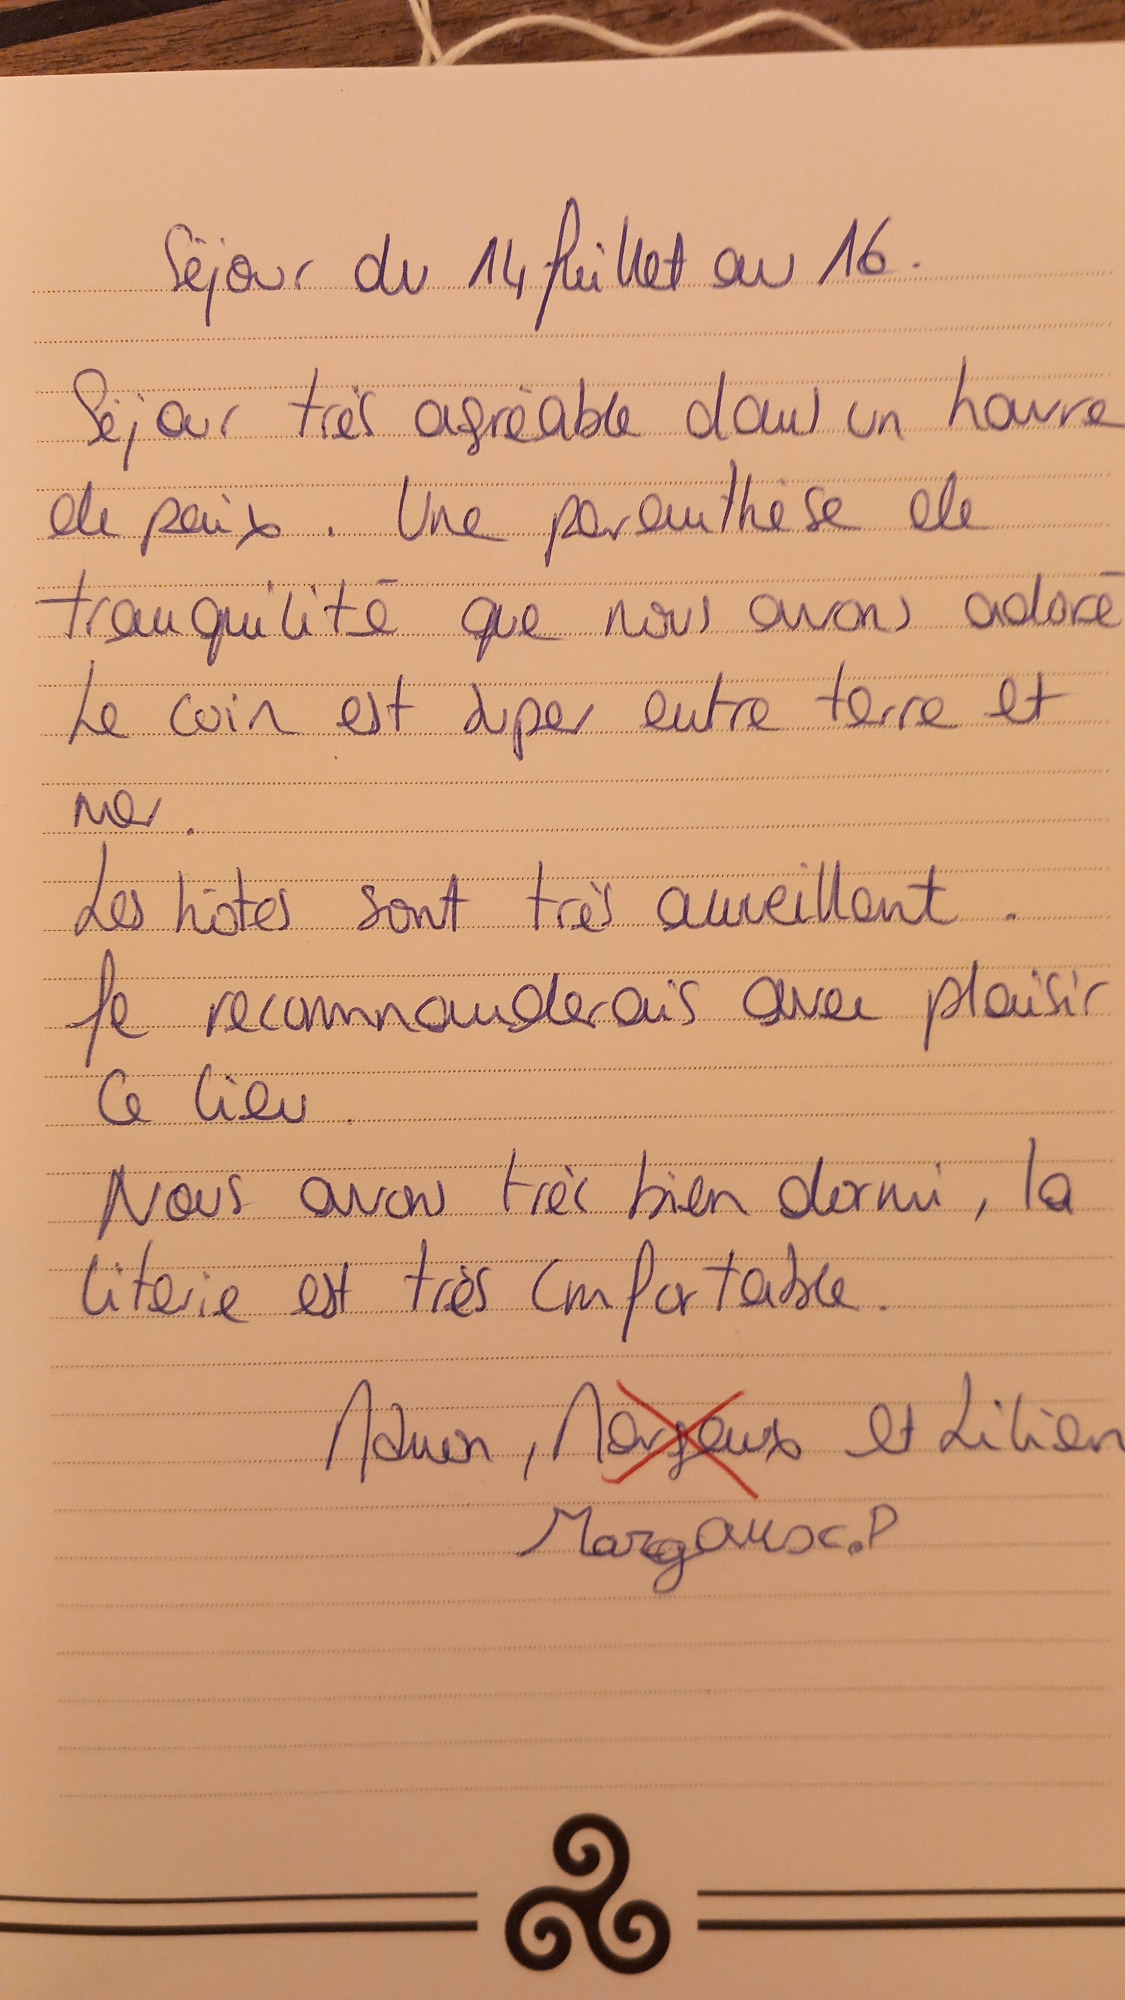 Séjour du 14 Juillet au 16.
Séjour très agréable dans un havre
de paix. Une paranthèse de
tranquilité que nous avons adoré
Le coin est super entre terre et
mer.
Les hôtes sont très auveillant.
Je recommanderais avec plaisir
ce lieu.
Nous avons très bien dormi, la
literie est très confortable.
Margaux et Lilian
Margaux.P